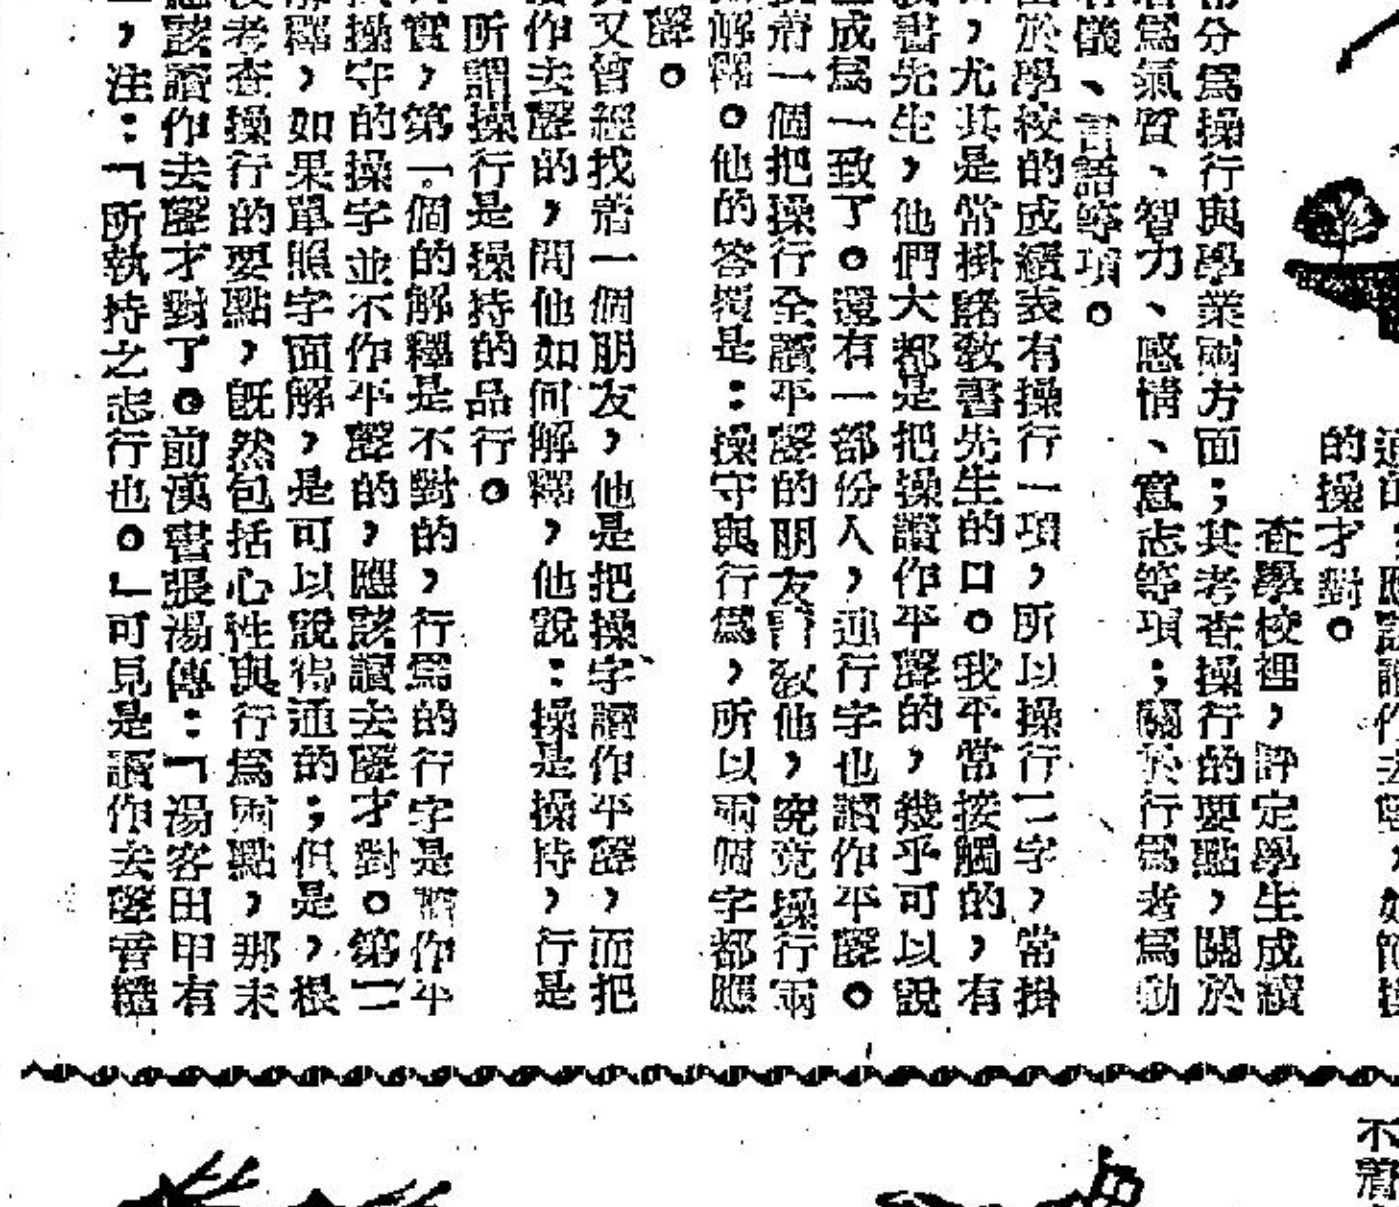 通的，應該讀作去聲，如節操
的操才對。
查學校裡，評定學生成績
部分爲操行與學業兩方面；其考查操行的要點，關於
者爲氣質、智力、感情、意志等項；關於行爲者爲動
有儀、言語等項。
由於學校的成績表有操行一項，所以操行二字，常掛
，尤其是常掛諸教書先生的口。我平常接觸的，有
教書先生，他們大都是把操讀作平聲的，幾乎可以說
成爲一致了。還有一部份人，連行字也讀作平聲。
着一個把操行全讀平聲的朋友請教他，究竟操行兩
解釋。他的答覆是：操守與行爲，所以兩個字都應
聲。
又曾經找着一個朋友，他是把操字讀作平聲，而把
作去聲的，問他如何解釋，他說：操是操持，行是
所謂操行是操持的品行。
實，第一個的解釋是不對的，行爲的行字是讀作平
操守的操字並不作平聲的，應該讀去聲才對。第二
解釋，如果單照字面解，是可以說得通的；但是，根
考查操行的要點，既然包括心性與行爲兩點，那末
應該讀作去聲才對了。前漢書張湯傳：「湯客田甲有
，注：「所執持之志行也。」可見是讀作去聲音糙
不着